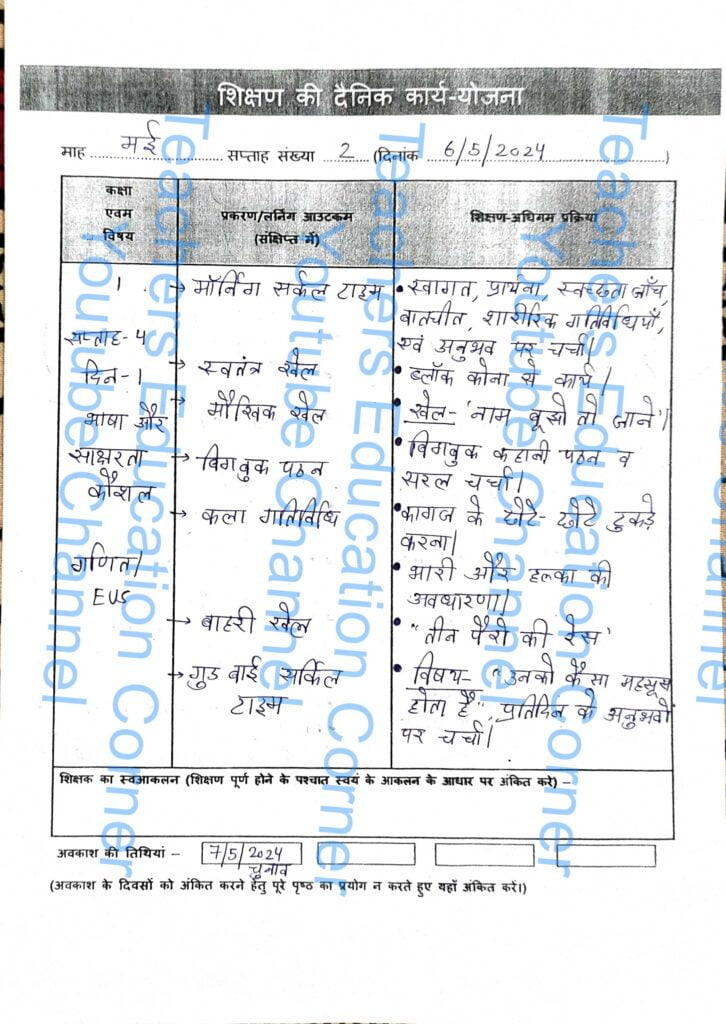 शिक्षण की दैनिक कार्य-योजना
माह ....मई.... सप्ताह संख्या ...2... (दिनांक ...6/5/2024...)
कक्षा
एवम
विषय
प्रकरण/लर्निग आउटकम
(संक्षिप्त में)
शिक्षण-अधिगम प्रक्रिया
1
सप्ताह-4
दिन-1
भाषा और
साक्षरता
कौशल
गणित/
EVS
→ मॉर्निंग सर्कल टाइम
→ स्वतंत्र खेल
→ मौखिक खेल
→ बिगबुक पठन
→ कला गतिविधि
→ बाहरी खेल
→ गुड बाई सर्किल
टाइम
• स्वागत, प्रार्थना, स्वच्छता जाँच,
बातचीत, शारीरिक गतिविधियाँ,
एवं अनुभव पर चर्चा।
• ब्लॉक कोना से कार्य।
• खेल- 'नाम बूझो तो जाने'।
• बिगबुक कहानी पठन व
सरल चर्चा।
• कागज के छोटे-छोटे टुकड़े
करना।
• भारी और हलका की
अवधारणा।
• "तीन पैरों की रेस'
• विषय- "उनको कैसा महसूस
होता है" प्रतिदिन के अनुभवों
पर चर्चा।
शिक्षक का स्वआकलन (शिक्षण पूर्ण होने के पश्चात स्वयं के आकलन के आधार पर अंकित करे) –
अवकाश की तिथियां – 7/5/2024
चुनाव
(अवकाश के दिवसों को अंकित करने हेतु पूरे पृष्ठ का प्रयोग न करते हुए यहाँ अंकित करें।)
Teachers Education Corner
Youtube Channel
Teachers Education Corner
Youtube Channel
Teachers Education Corner
Youtube Channel